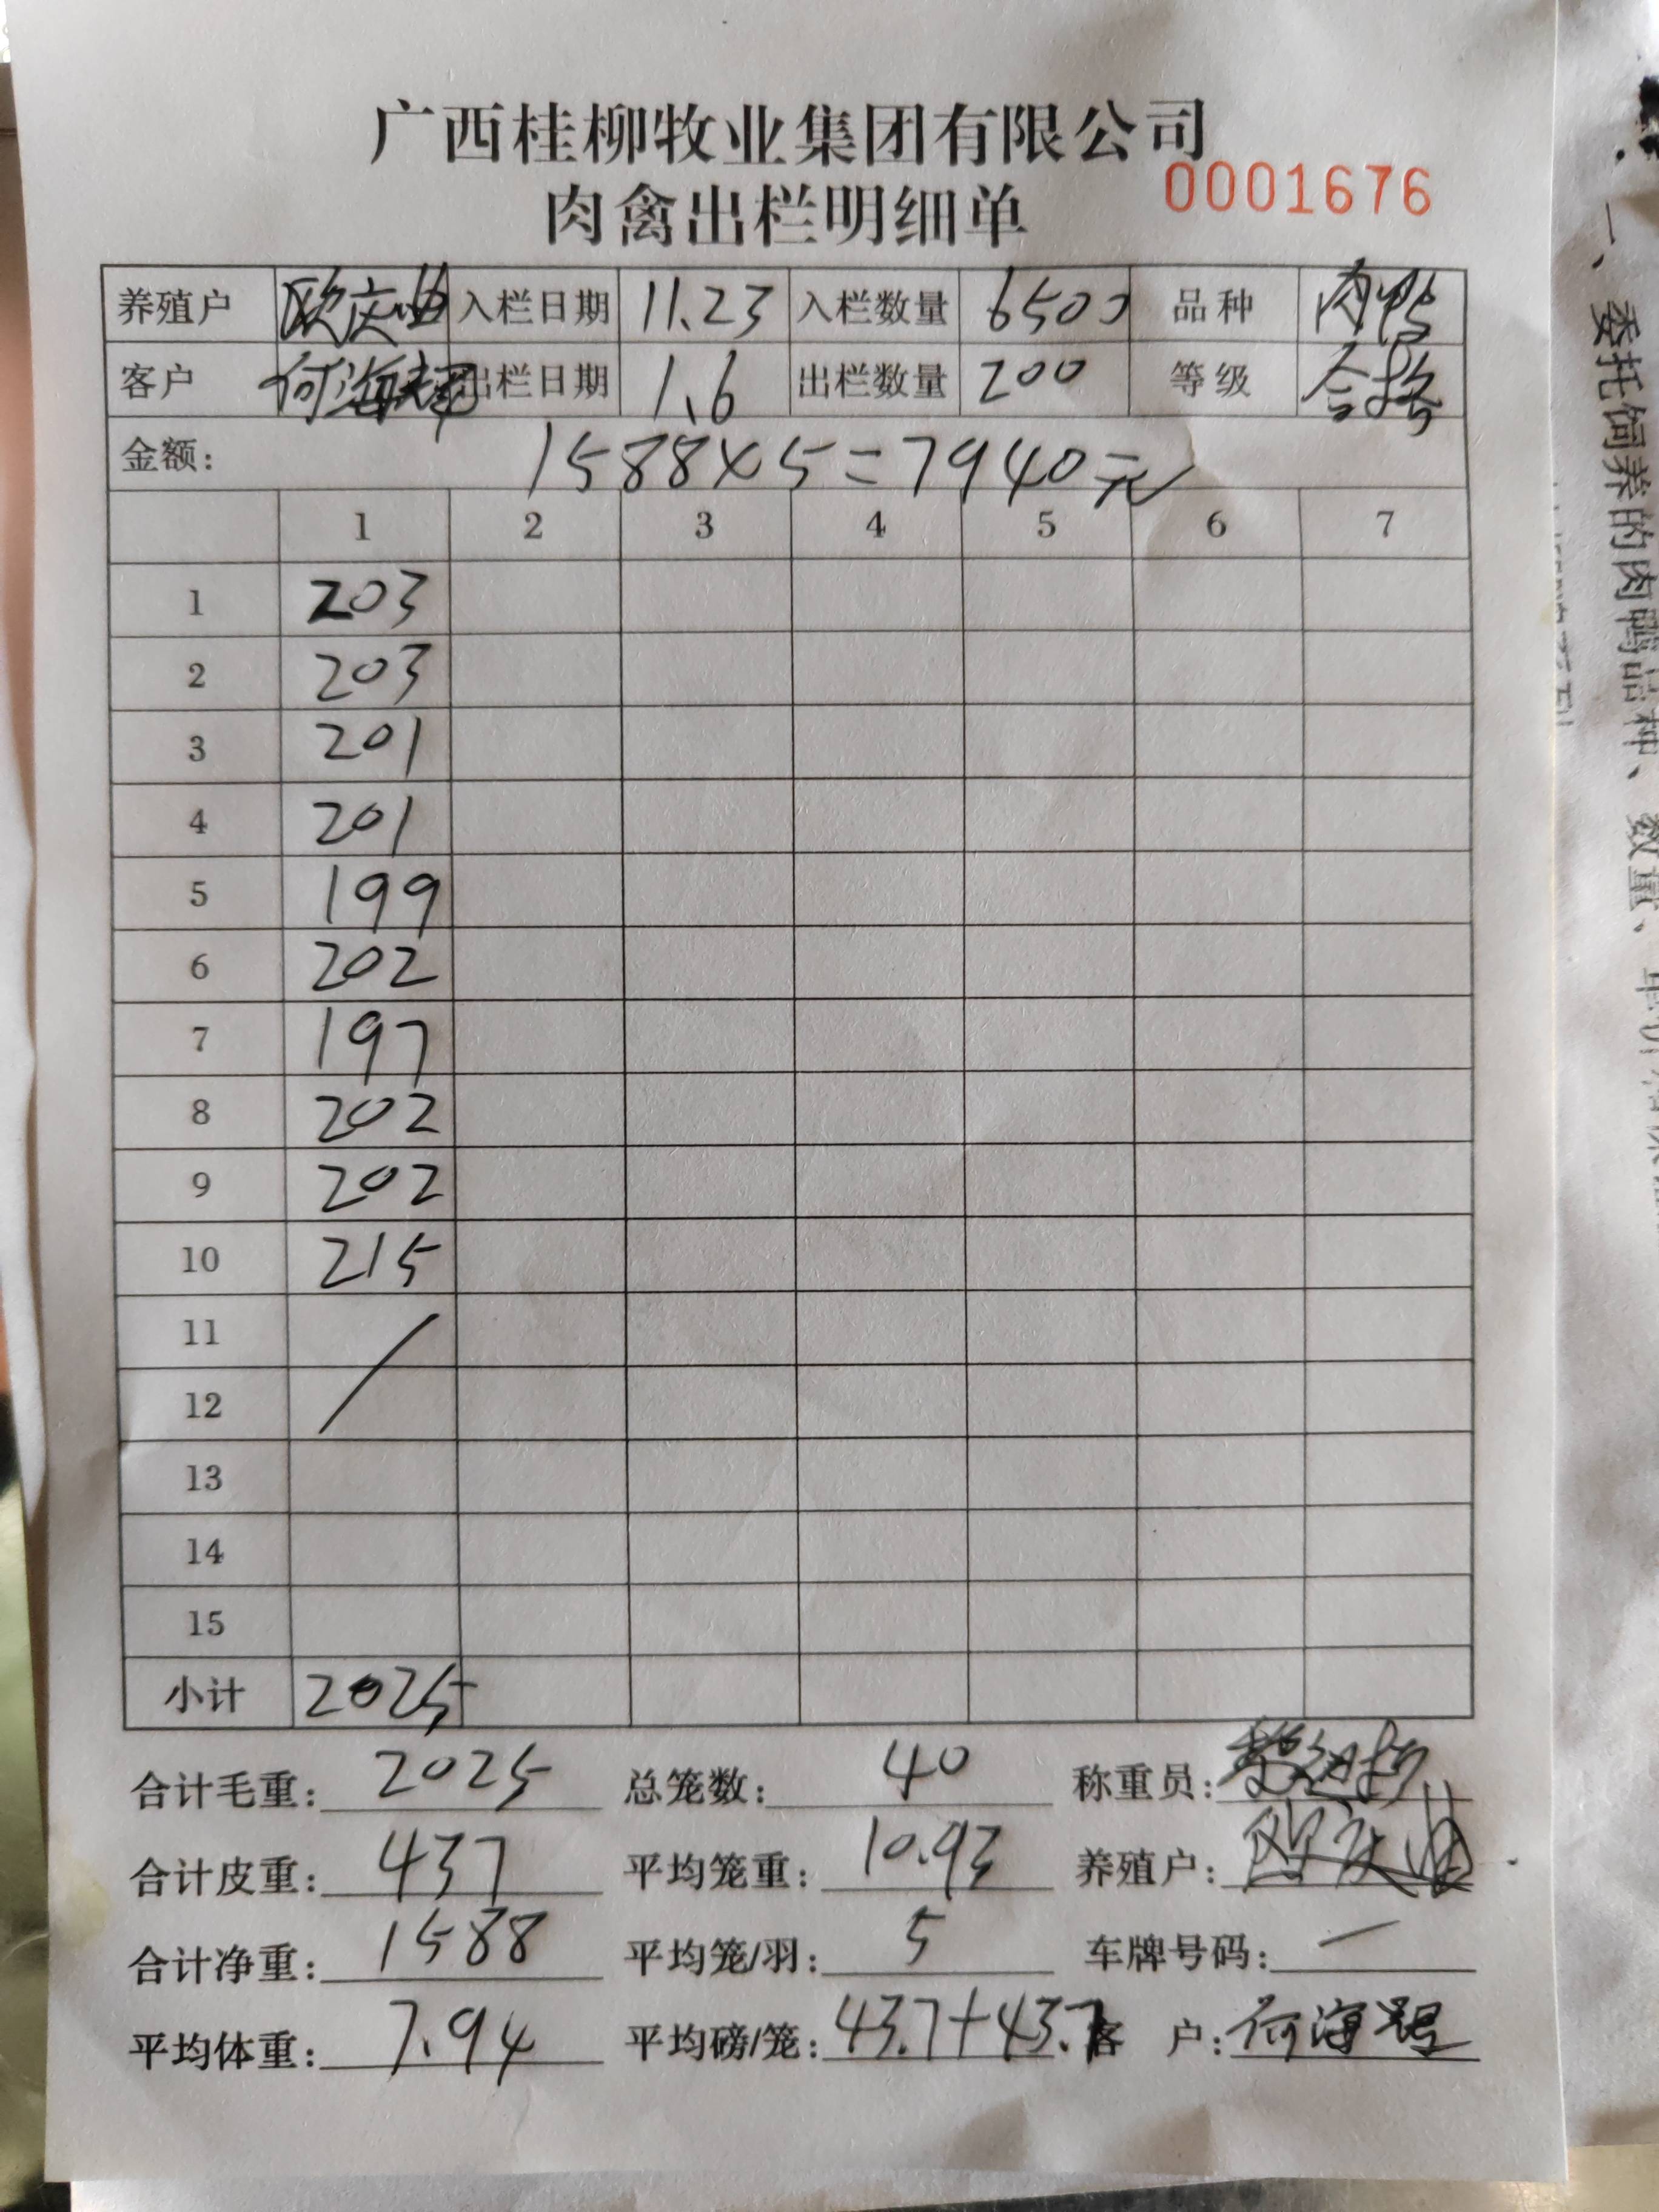 广西桂柳牧业集团有限公司
肉禽出栏明细单 0001676
养殖户 欧庆 入栏日期 11.23 入栏数量 6500 品种 肉鸭
客户 何海 出栏日期 1.6 出栏数量 200 等级 合格
金额: 1588×5=7940元
1 2 3 4 5 6 7
1 203
2 203
3 201
4 201
5 199
6 202
7 197
8 202
9 202
10 215
11
12
13
14
15
小计 2025
合计毛重: 2025 总笼数: 40 称重员:
合计皮重: 437 平均笼重: 10.93 养殖户: 欧庆
合计净重: 1588 平均笼/羽: 5 车牌号码: 一
平均体重: 7.94 平均磅/笼: 43.7+43.7 客 户: 何海
一、委托饲养的肉鸭品种、数量、单价